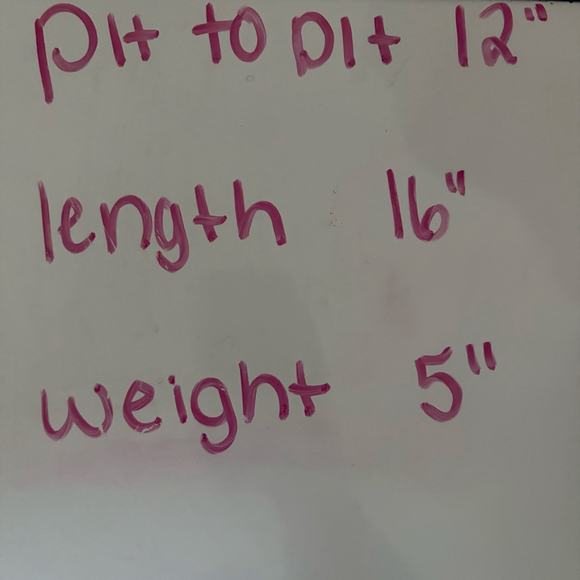 pit to pit 12"
length 16"
weight 5"